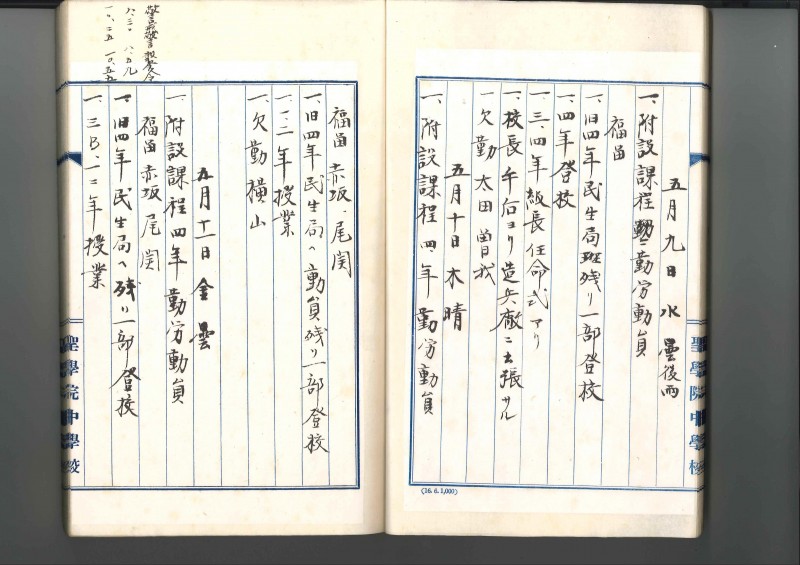 五月九日 水 曇後雨
一、附設課程勤労動員
福留
一、旧四年民生局班残リ一部登校
一、四年登校
一、三、四年級長任命式アリ
一、校長午后ヨリ造兵廠ニ出張サル
一、欠勤 太田 曽我
五月十日 木 晴
一、附設課程四年勤労動員
聖學院中學校
(16. 6. 1,000)
福留 赤坂、尾関
一、旧四年民生局ヘ動員残リ一部登校
一、一、二年授業
一、欠勤 横山
五月十一日 金 曇
一、附設課程四年勤労動員
福留 赤坂 尾関
一、旧四年民生局ヘ残リ一部登校
一、三B、一、二年授業
聖學院中學校